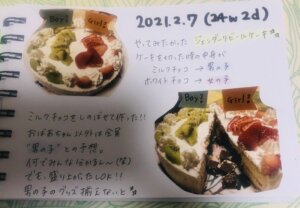 Boy? Girl?
2021.2.7 (24w2d)
やってみたかった ジェンダーリビールケーキ
ケーキを切った時の中身が
ミルクチョコ → 男の子
ホワイトチョコ → 女の子
Boy? Girl?
ミルクチョコをしのばせて作った!!
おばあちゃん以外は全員
"男の子"との予想。
何でみんな分かるん〜(笑)
でも、盛り上がったしOK!!
男の子のグッズ揃えないと